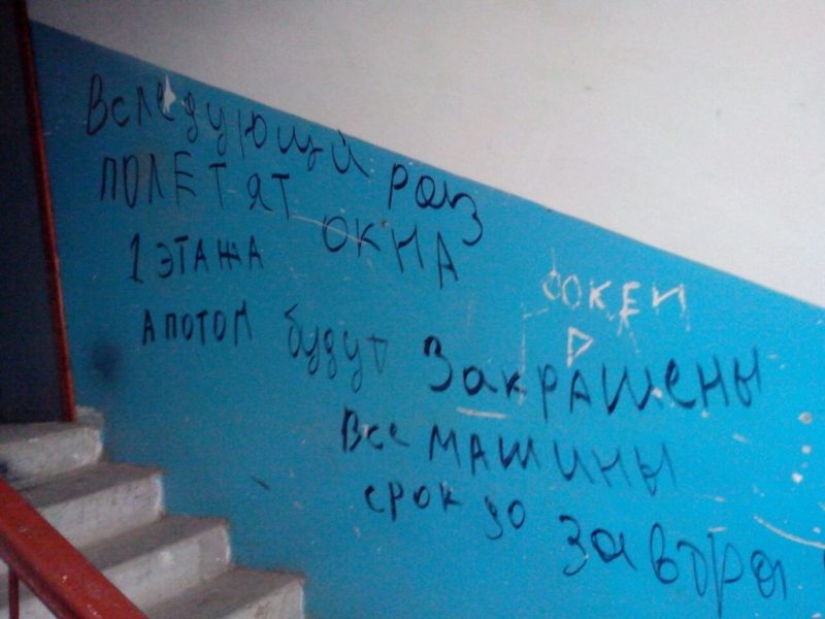 Вследующий раз
ПОЛЕТЯТ ОКНА
1 ЭТАЖА
А ПОТОМ будут ЗакРАШЕНЫ
Все МАШИНЫ
срок до Завтра
ФОКЕИ